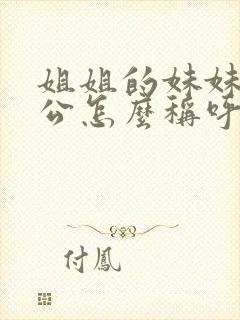 姐姐的妹妹
公怎麼稱呼
付鳳